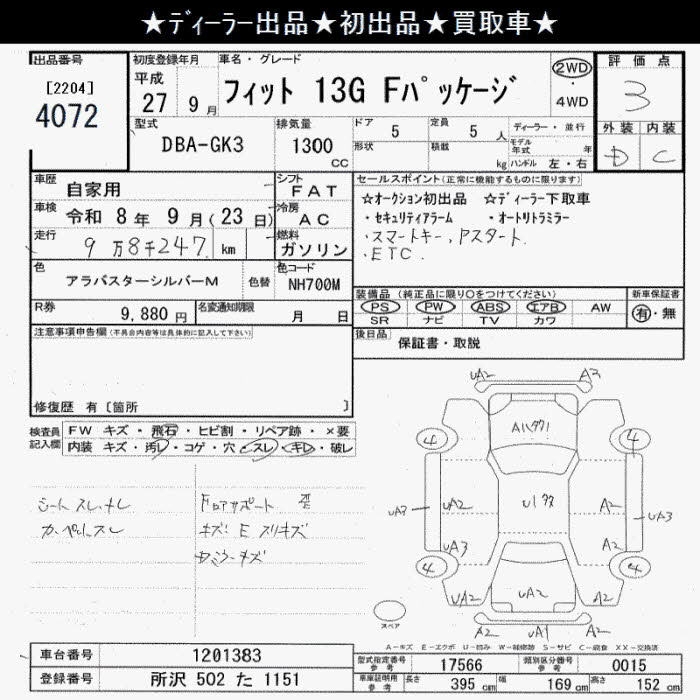 ★ディーラー出品★初出品★買取車★
出品番号
[2204]
4072
初度登録年月
平成
27 9 月
車名・グレード
フィット 13G Fパッケージ
2WD
・
4WD
評価点
3
外装 内装
D C
型式
DBA-GK3
排気量
1300
CC
ドア 5
形状
定員 5 人
積載 kg
ディーラー・並行
モデル年式 年
ハンドル 左・右
車歴 自家用
シフト FAT
車検 令和 8 年 9 月(23 日)
冷房 AC
走行 9万8千247 km
燃料 ガソリン
色 アラバスターシルバーM
色替
色コード NH700M
R券 9,880 円
名変通知期限 月 日
セールスポイント(正常に機能するものに限ります)
☆オークション初出品 ☆ディーラー下取車
・セキュリティアラーム ・オートリトラミラー
・スマートキー,Pスタート,
・ETC.
装備品(純正品に限り○をつけてください)
PS PW ABS エアB AW
SR ナビ TV カワ
新車保証書
有・無
後日品 保証書・取説
注意事項申告欄(不具合内容等は具体的に記入して下さい)
修復歴 有〔箇所 〕
検査員記入欄
FW キズ・飛石・ヒビ割・リペア跡・×要
内装 キズ・汚レ・コゲ・穴・スレ・キレ・破レ
シート スレ,キレ
カーペットスレ
キズ
UA2 A2
4 4
UA3 UA2 A2 UA3
UA3 A2
4 4
UA2 UA2 A2
A2 UA1 A2
スペア
A-キズ E-エクボ U-凹み W-補修跡 S-サビ C-腐食 XX-交換済
車台番号 1201383
登録番号 所沢 502 た 1151
型式指定番号 参考 17566
類別区分番号 参考 0015
車庫証明用 参考 長さ 395 cm 幅 169 cm 高さ 152 cm